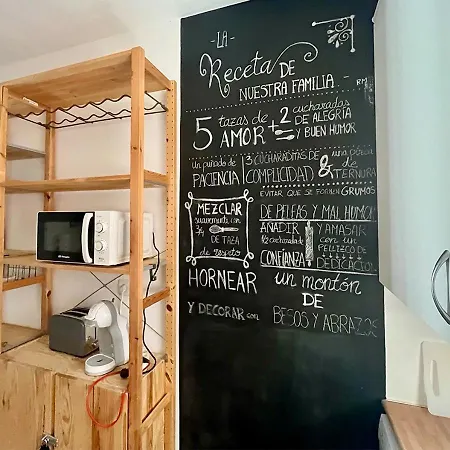 LA
Receta DE
NUESTRA FAMILIA
RM
5 tazas de AMOR + 2 cucharadas DE ALEGRÍA Y BUEN HUMOR
Un puñado de PACIENCIA 3 COCHARADITAS DE COMPLICIDAD & una pizca de TERNURA
EVITAR QUE SE FORMEN GRUMOS
DE PELEAS Y MAL HUMOR
MEZCLAR suavemente con 3/4 de TAZA de respeto
AÑADIR 1/2 cucharada de CONFIANZA Y AMASAR con un PELLIZCO de DEDICACIÓN
HORNEAR un montón DE
Y DECORAR con BESOS Y ABRAZOS